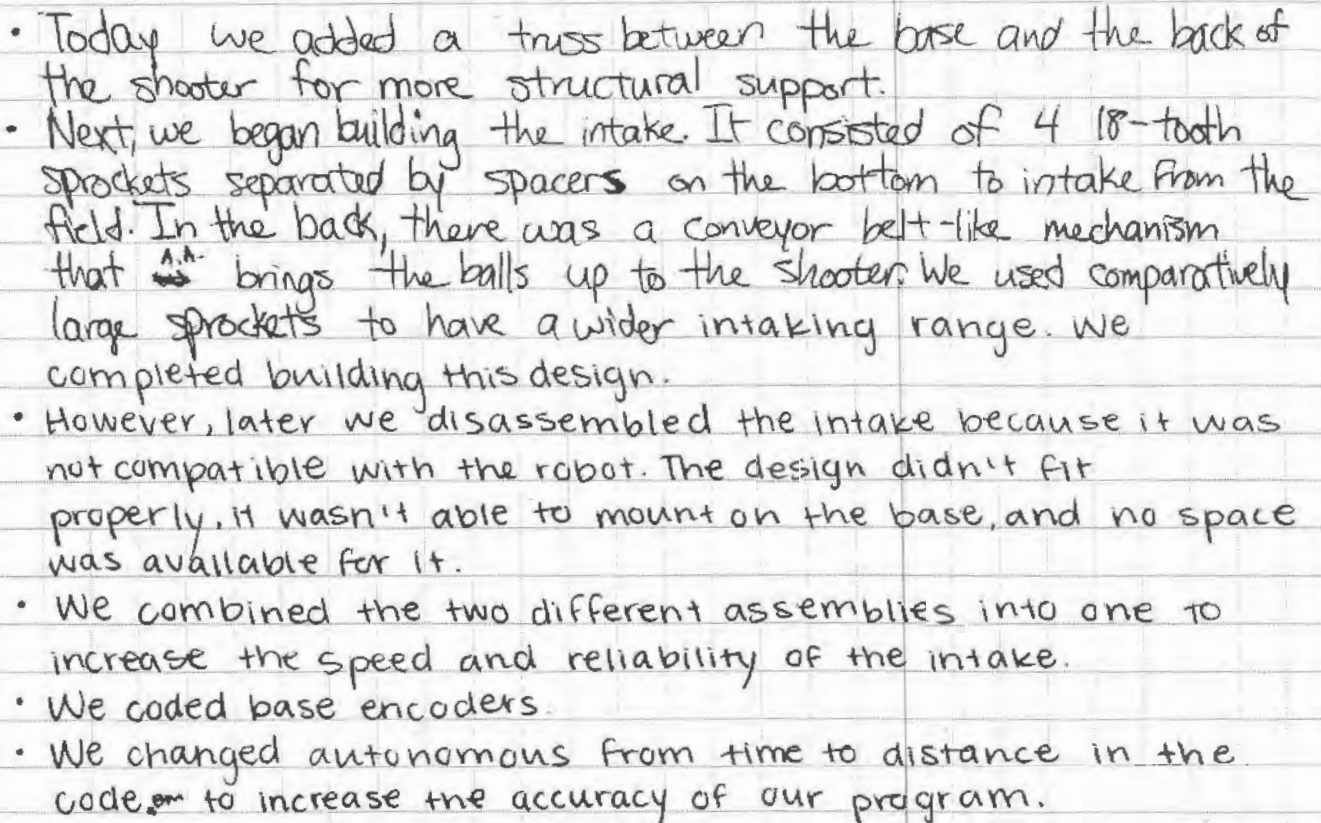 • Today we added a truss between the base and the back of
the shooter for more structural support.
• Next, we began building the intake. It consisted of 4 18-tooth
sprockets separated by spacers on the bottom to intake from the
field. In the back, there was a conveyor belt-like mechanism
that A.A. brings the balls up to the shooter. We used comparatively
large sprockets to have a wider intaking range. We
completed building this design.
• However, later we disassembled the intake because it was
not compatible with the robot. The design didn't fit
properly, it wasn't able to mount on the base, and no space
was available for it.
• We combined the two different assemblies into one to
increase the speed and reliability of the intake.
• We coded base encoders.
• We changed autonomous from time to distance in the
code to increase the accuracy of our program.